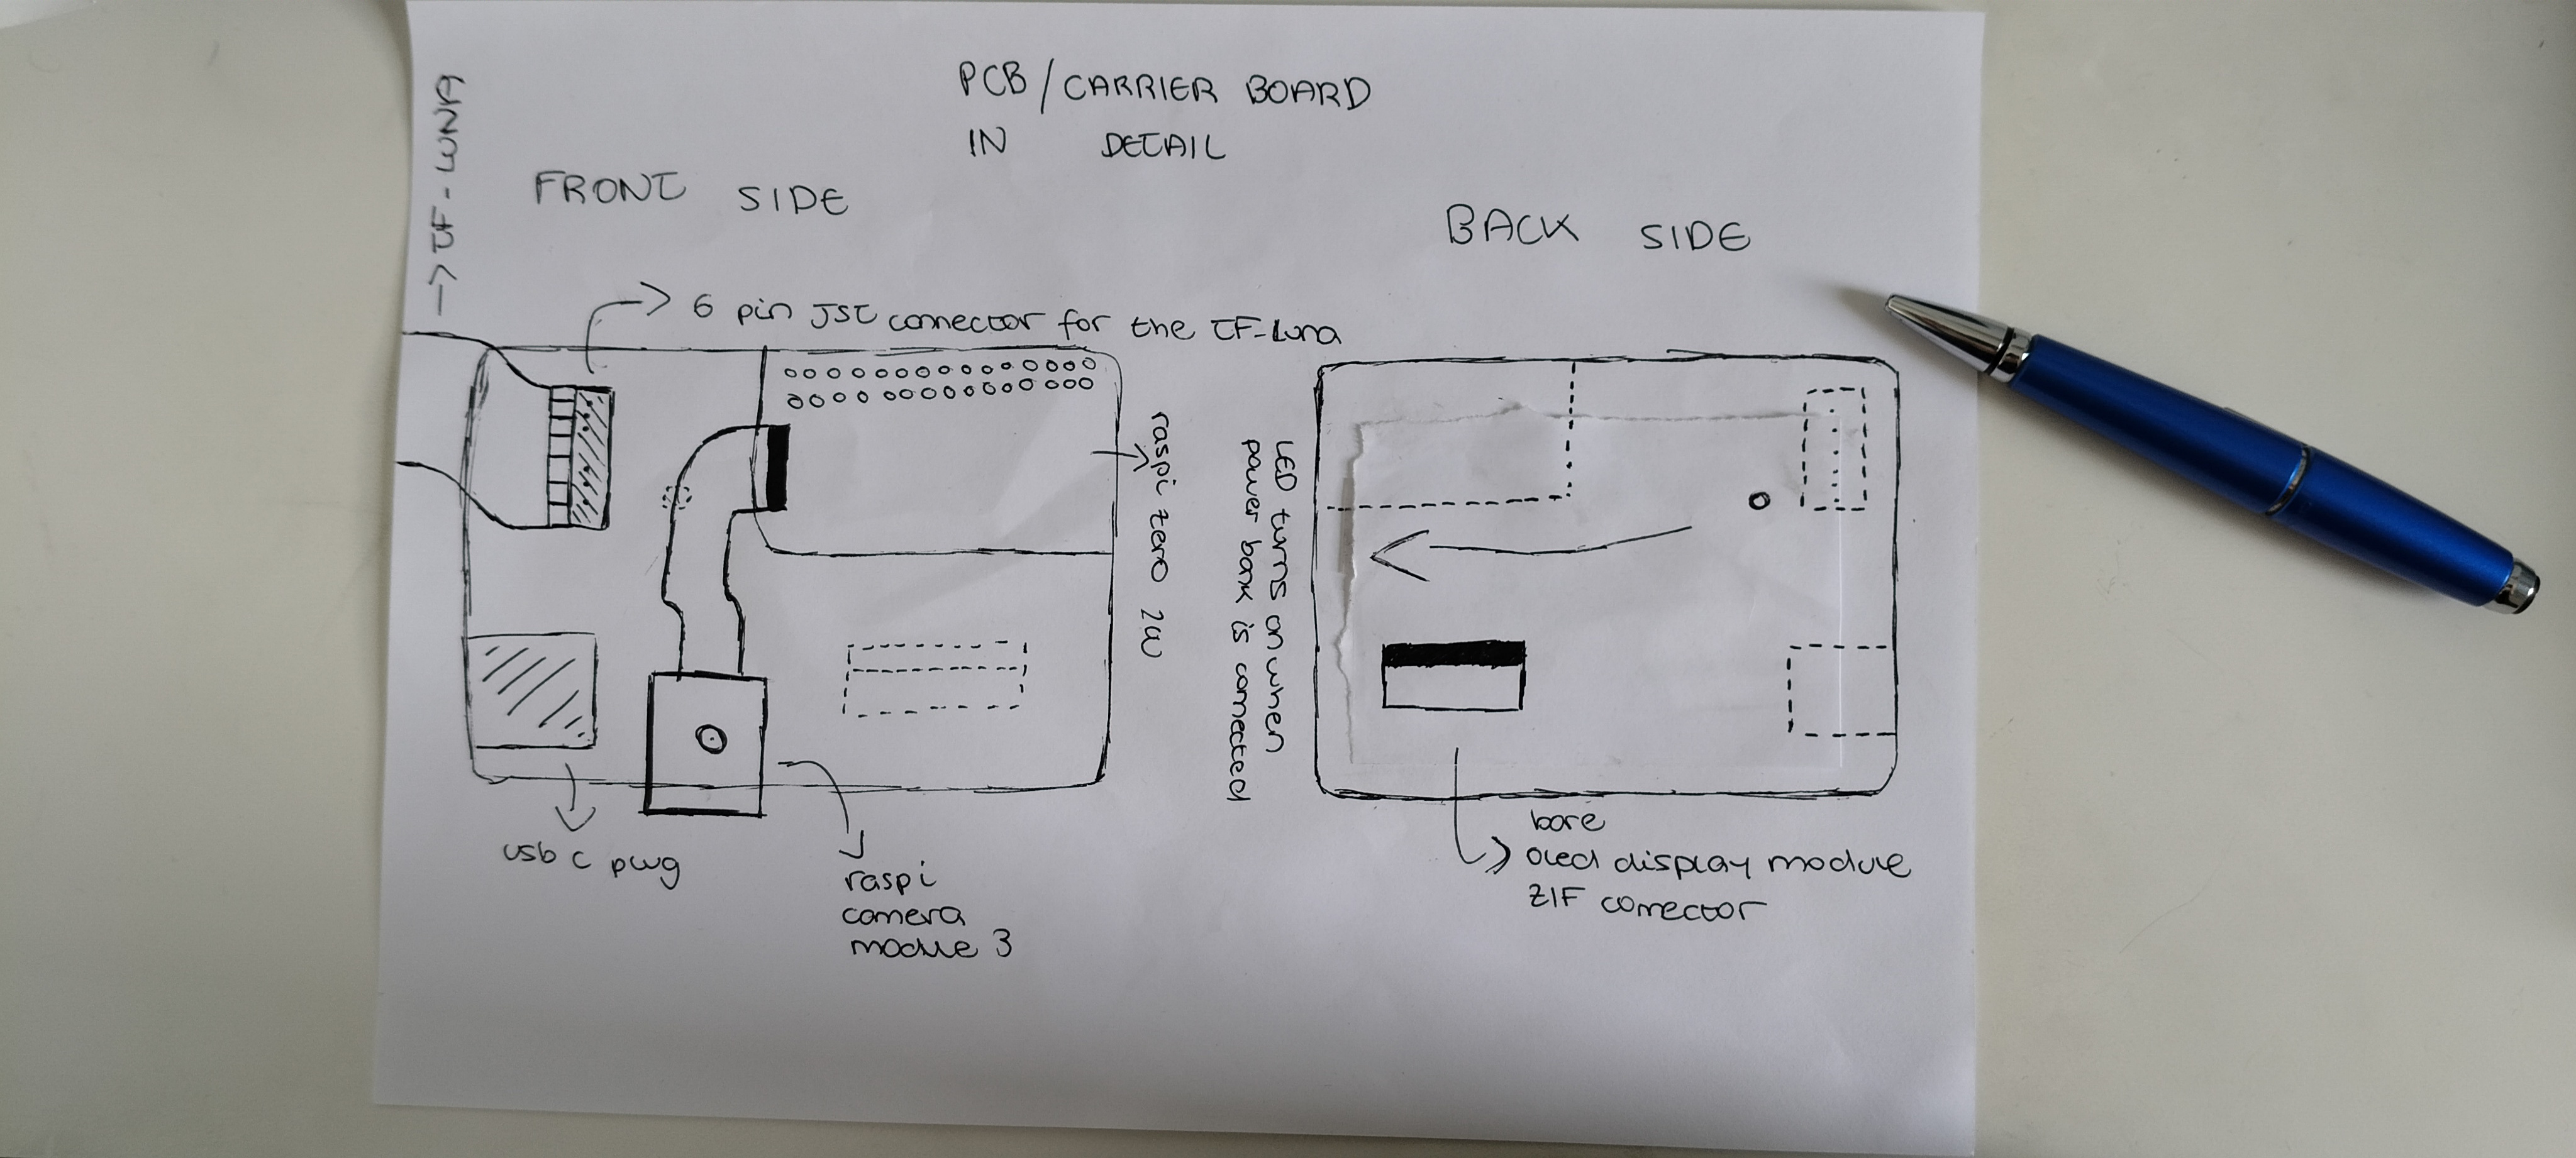 PCB/CARRIER BOARD
IN DETAIL
FRONT SIDE
BACK SIDE
→ TF-LUNA
6 pin JST connector for the TF-Luna
raspi zero 2W
LED turns on when
power bank is connected
usb c plug
raspi
camera
module 3
bare
oled display module
ZIF connector